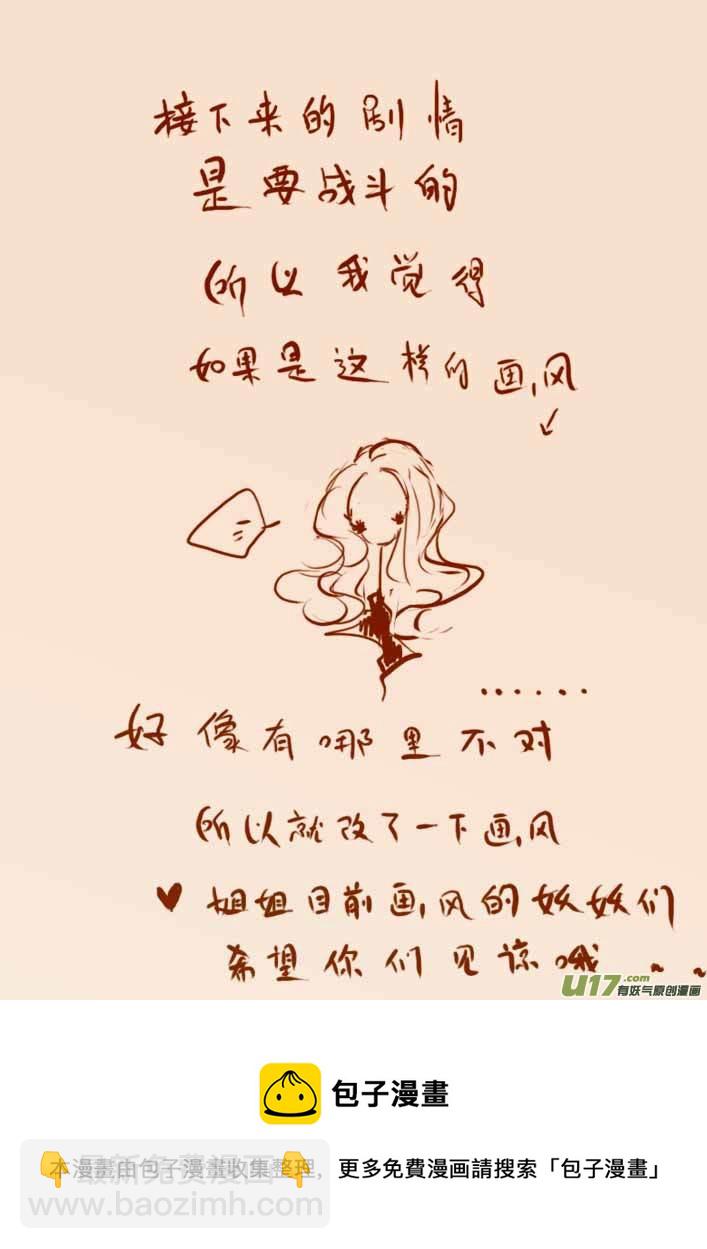 接下来的剧情
是要战斗的
所以我觉得
如果是这样的画风
......
好像有哪里不对
所以就改了一下画风
♥姐姐目前画风的妖妖们
希望你们见谅哦~~
U17.com
有妖气原创漫画
包子漫畫
本漫畫由包子漫畫收集整理，更多免費漫画請搜索「包子漫畫」
👇最新免费漫画👇
www.baozimh.com